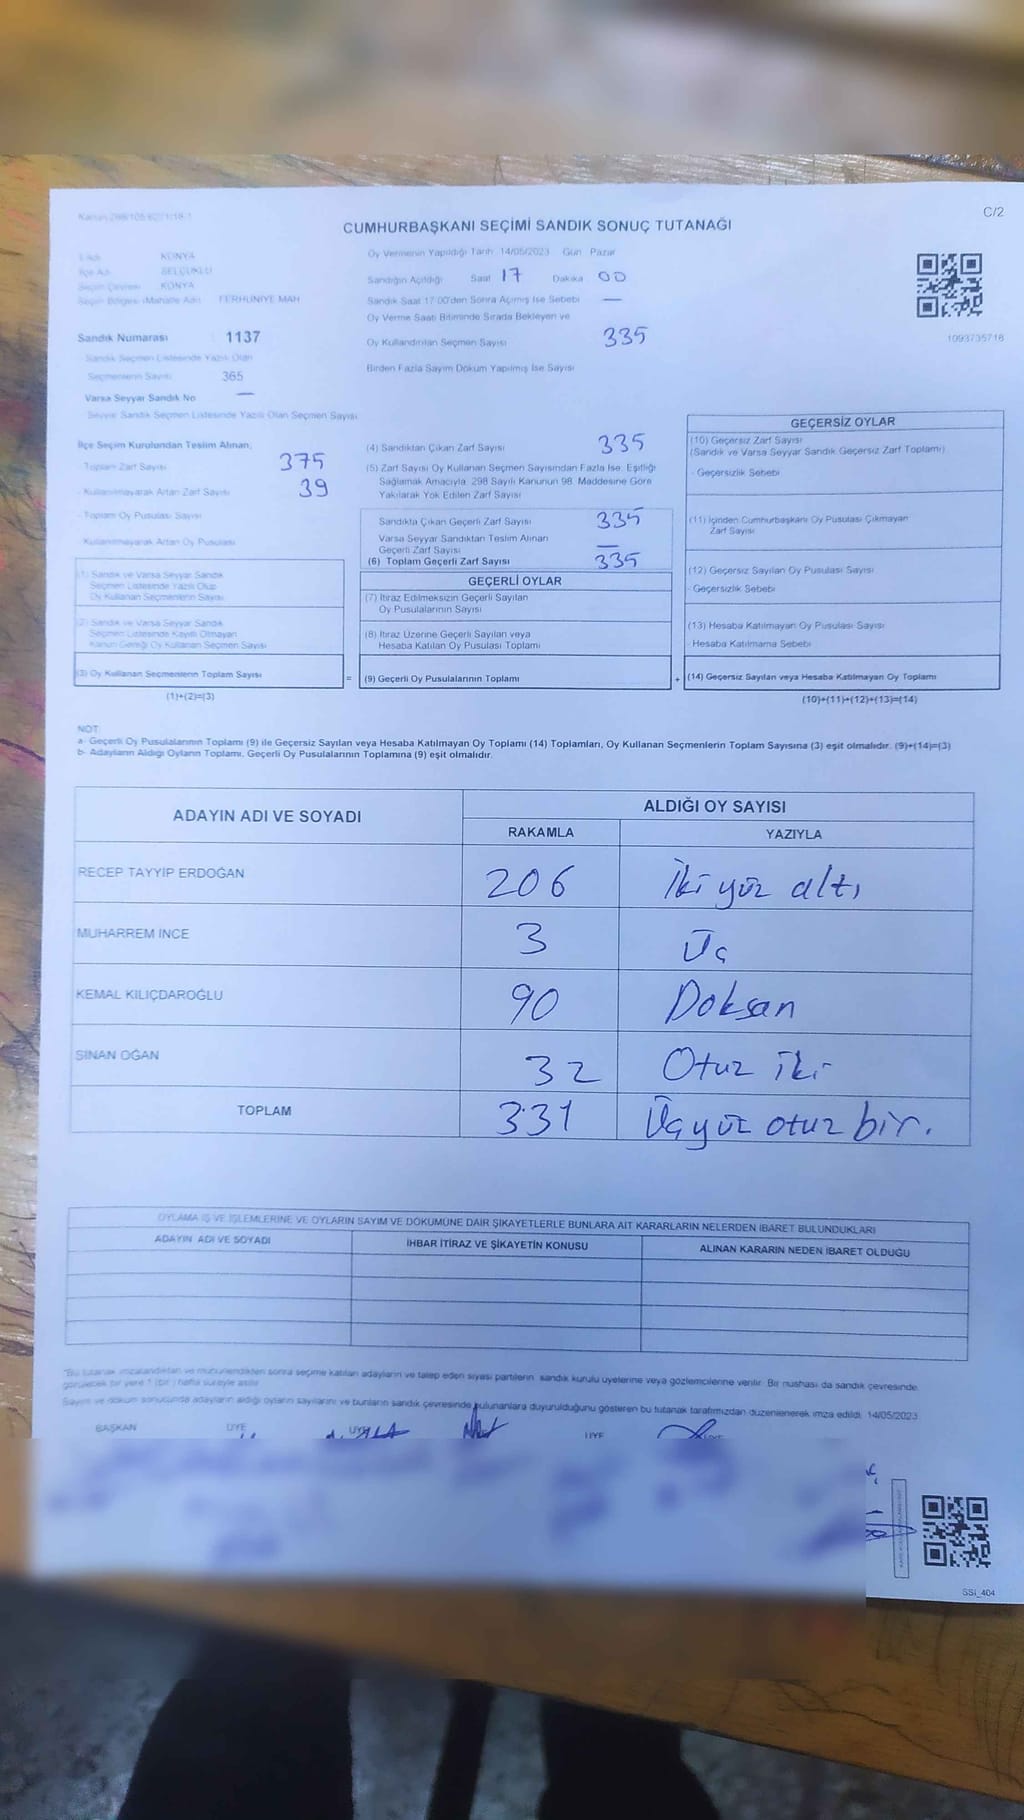 C/2
CUMHURBAŞKANI SEÇİMİ SANDIK SONUÇ TUTANAĞI
İli Adı KONYA
İlçe Adı SELÇUKLU
Seçim Çevresi KONYA
Seçim Bölgesi (Mahalle Adı) FERHUNİYE MAH
Sandık Numarası 1137
Sandık Seçmen Listesinde Yazılı Olan
Seçmenlerin Sayısı 365
Varsa Seyyar Sandık No —
Seyyar Sandık Seçmen Listesinde Yazılı Olan Seçmen Sayısı
Oy Vermenin Yapıldığı Tarih 14/05/2023 Gün Pazar
Sandığın Açıldığı Saat 17 Dakika 00
Sandık Saat 17:00'den Sonra Açılmış İse Sebebi —
Oy Verme Saati Bitiminde Sırada Bekleyen ve
Oy Kullandırılan Seçmen Sayısı 335
Birden Fazla Sayım Döküm Yapılmış İse Sayısı
1093735718
İlçe Seçim Kurulundan Teslim Alınan;
Toplam Zarf Sayısı 375
- Kullanılmayarak Artan Zarf Sayısı 39
- Toplam Oy Pusulası Sayısı
- Kullanılmayarak Artan Oy Pusulası
(1) Sandık ve Varsa Seyyar Sandık
Seçmen Listesinde Yazılı Olup
Oy Kullanan Seçmenlerin Sayısı
(2) Sandık ve Varsa Seyyar Sandık
Seçmen Listesinde Kayıtlı Olmayan
Kanun Gereği Oy Kullanan Seçmen Sayısı
(3) Oy Kullanan Seçmenlerin Toplam Sayısı
(1)+(2)=(3)
(4) Sandıktan Çıkan Zarf Sayısı 335
(5) Zarf Sayısı Oy Kullanan Seçmen Sayısından Fazla İse, Eşitliği
Sağlamak Amacıyla, 298 Sayılı Kanunun 98. Maddesine Göre
Yakılarak Yok Edilen Zarf Sayısı
Sandıkta Çıkan Geçerli Zarf Sayısı 335
Varsa Seyyar Sandıktan Teslim Alınan
Geçerli Zarf Sayısı —
(6) Toplam Geçerli Zarf Sayısı 335
GEÇERLİ OYLAR
(7) İtiraz Edilmeksizin Geçerli Sayılan
Oy Pusulalarının Sayısı
(8) İtiraz Üzerine Geçerli Sayılan veya
Hesaba Katılan Oy Pusulası Toplamı
= (9) Geçerli Oy Pusulalarının Toplamı
GEÇERSİZ OYLAR
(10) Geçersiz Zarf Sayısı
(Sandık ve Varsa Seyyar Sandık Geçersiz Zarf Toplamı)
- Geçersizlik Sebebi
(11) İçinden Cumhurbaşkanı Oy Pusulası Çıkmayan
Zarf Sayısı
(12) Geçersiz Sayılan Oy Pusulası Sayısı
- Geçersizlik Sebebi
(13) Hesaba Katılmayan Oy Pusulası Sayısı
- Hesaba Katılmama Sebebi
+ (14) Geçersiz Sayılan veya Hesaba Katılmayan Oy Toplamı
(10)+(11)+(12)+(13)=(14)
NOT:
a- Geçerli Oy Pusulalarının Toplamı (9) ile Geçersiz Sayılan veya Hesaba Katılmayan Oy Toplamı (14) Toplamları, Oy Kullanan Seçmenlerin Toplam Sayısına (3) eşit olmalıdır. (9)+(14)=(3)
b- Adayların Aldığı Oyların Toplamı, Geçerli Oy Pusulalarının Toplamına (9) eşit olmalıdır.
ADAYIN ADI VE SOYADI ALDIĞI OY SAYISI
RAKAMLA YAZIYLA
RECEP TAYYİP ERDOĞAN 206 İki yüz altı
MUHARREM İNCE 3 Üç
KEMAL KILIÇDAROĞLU 90 Doksan
SİNAN OĞAN 32 Otuz iki
TOPLAM 331 Üçyüz otuz bir.
OYLAMA İŞ VE İŞLEMLERİNE VE OYLARIN SAYIM VE DÖKÜMÜNE DAİR ŞİKAYETLERLE BUNLARA AİT KARARLARIN NELERDEN İBARET BULUNDUKLARI
ADAYIN ADI VE SOYADI İHBAR İTİRAZ VE ŞİKAYETİN KONUSU ALINAN KARARIN NEDEN İBARET OLDUĞU
"Bu tutanak imzalandıktan ve mühürlendikten sonra seçime katılan adayların ve talep eden siyasi partilerin sandık kurulu üyelerine veya gözlemcilerine verilir. Bir nüshası da sandık çevresinde
görülecek bir yere 1 (bir) hafta süreyle asılır.
Sayım ve döküm sonucunda adayların aldığı oyların sayılarını ve bunların sandık çevresinde bulunanlara duyurulduğunu gösteren bu tutanak tarafımızdan düzenlenerek imza edildi. 14/05/2023
BAŞKAN ÜYE ÜYE ÜYE
SSİ_404